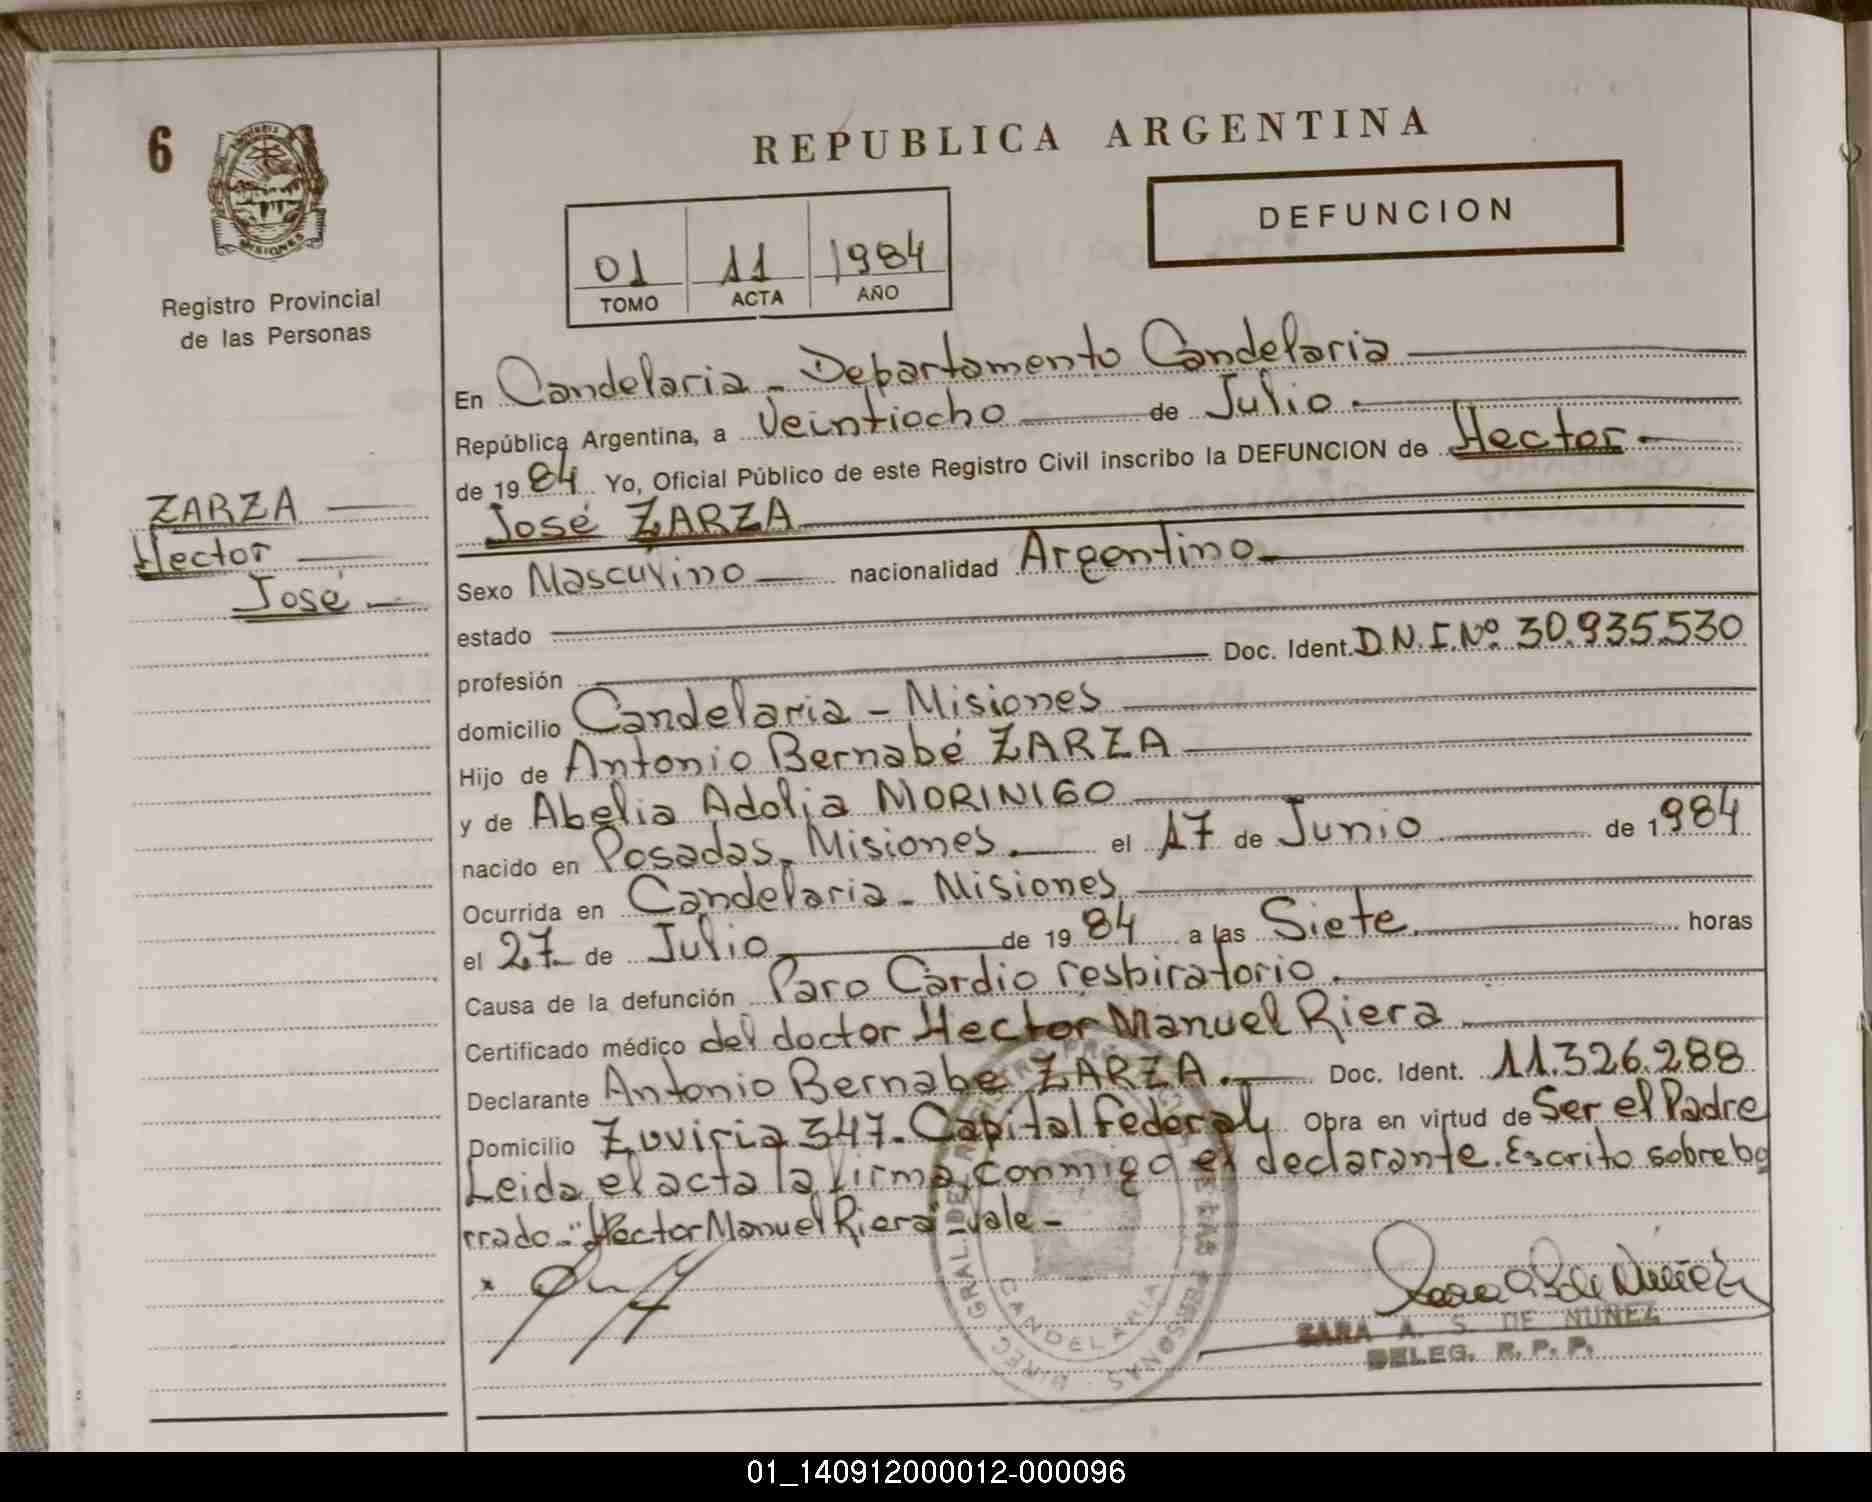 6
MISIONES
Registro Provincial
de las Personas
REPUBLICA ARGENTINA
DEFUNCION
01 11 1984
TOMO ACTA AÑO
En Candelaria - Departamento Candelaria
República Argentina, a Veintiocho de Julio.
de 1984 Yo, Oficial Público de este Registro Civil inscribo la DEFUNCION de Hector
José ZARZA
ZARZA
Hector
José
Sexo Masculino nacionalidad Argentino
estado
profesión Doc. Ident. D.N.I. Nº 30.935.530
domicilio Candelaria - Misiones
Hijo de Antonio Bernabé ZARZA
y de Abelia Adolia MORINIGO
nacido en Posadas, Misiones. el 17 de Junio de 1984
Ocurrida en Candelaria - Misiones
el 27 de Julio de 1984 a las Siete. horas
Causa de la defunción Paro Cardio respiratorio.
Certificado médico del doctor Hector Manuel Riera
Declarante Antonio Bernabe ZARZA. Doc. Ident. 11.326.288
Domicilio Zuviria 347- Capital Federal Obra en virtud de Ser el Padre
Leida el acta la firma conmigo el declarante. Escrito sobre bo
rrado.- "Hector Manuel Riera" vale -
CANDELARIA
SARA A. S. DE NUÑEZ
DELEG. R. P. P.
01_140912000012-000096